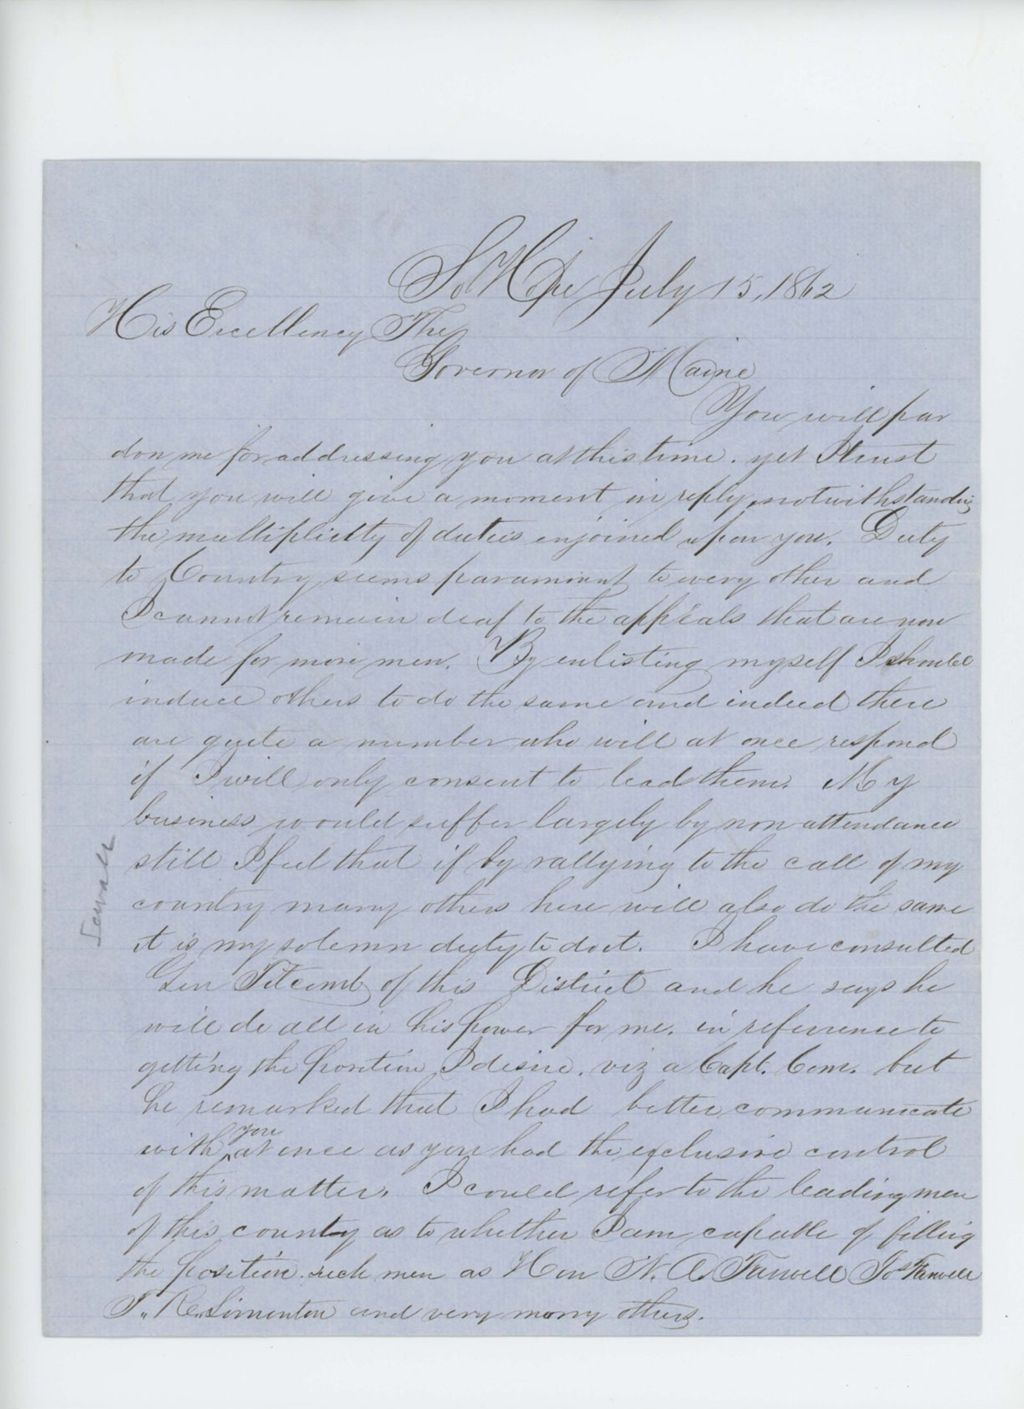 So Hope July 15, 1862
His Excellency The
Governor of Maine
You will par
don me for addressing you at this time. yet I trust
that you will give a moment in reply, notwithstanding
the multiplicity of duties enjoined upon you. Duty
to Country seems paramount to every other and
I cannot remain deaf to the appeals that are now
made for more men. By enlisting myself I should
induce others to do the same and indeed there
are quite a number who will at once respond
if I will only consent to lead them. My
business would suffer largely by non attendance
still I feel that if by rallying to the call of my
country many others here will also do the same
it is my solemn duty to do it. I have consulted
Gen Titcomb of this District and he says he
will do all in his power for me. in reference to
getting the position I desire. viz a Capt. Com. but
he remarked that I had better communicate
with you at once as you had the exclusive control
of this matter. I could refer to the leading men
of this county as to whether I am capable of filling
the position. such men as Hon N. A. Farwell Jos Farwell
T. R. Simonton and very many others.
Sewall